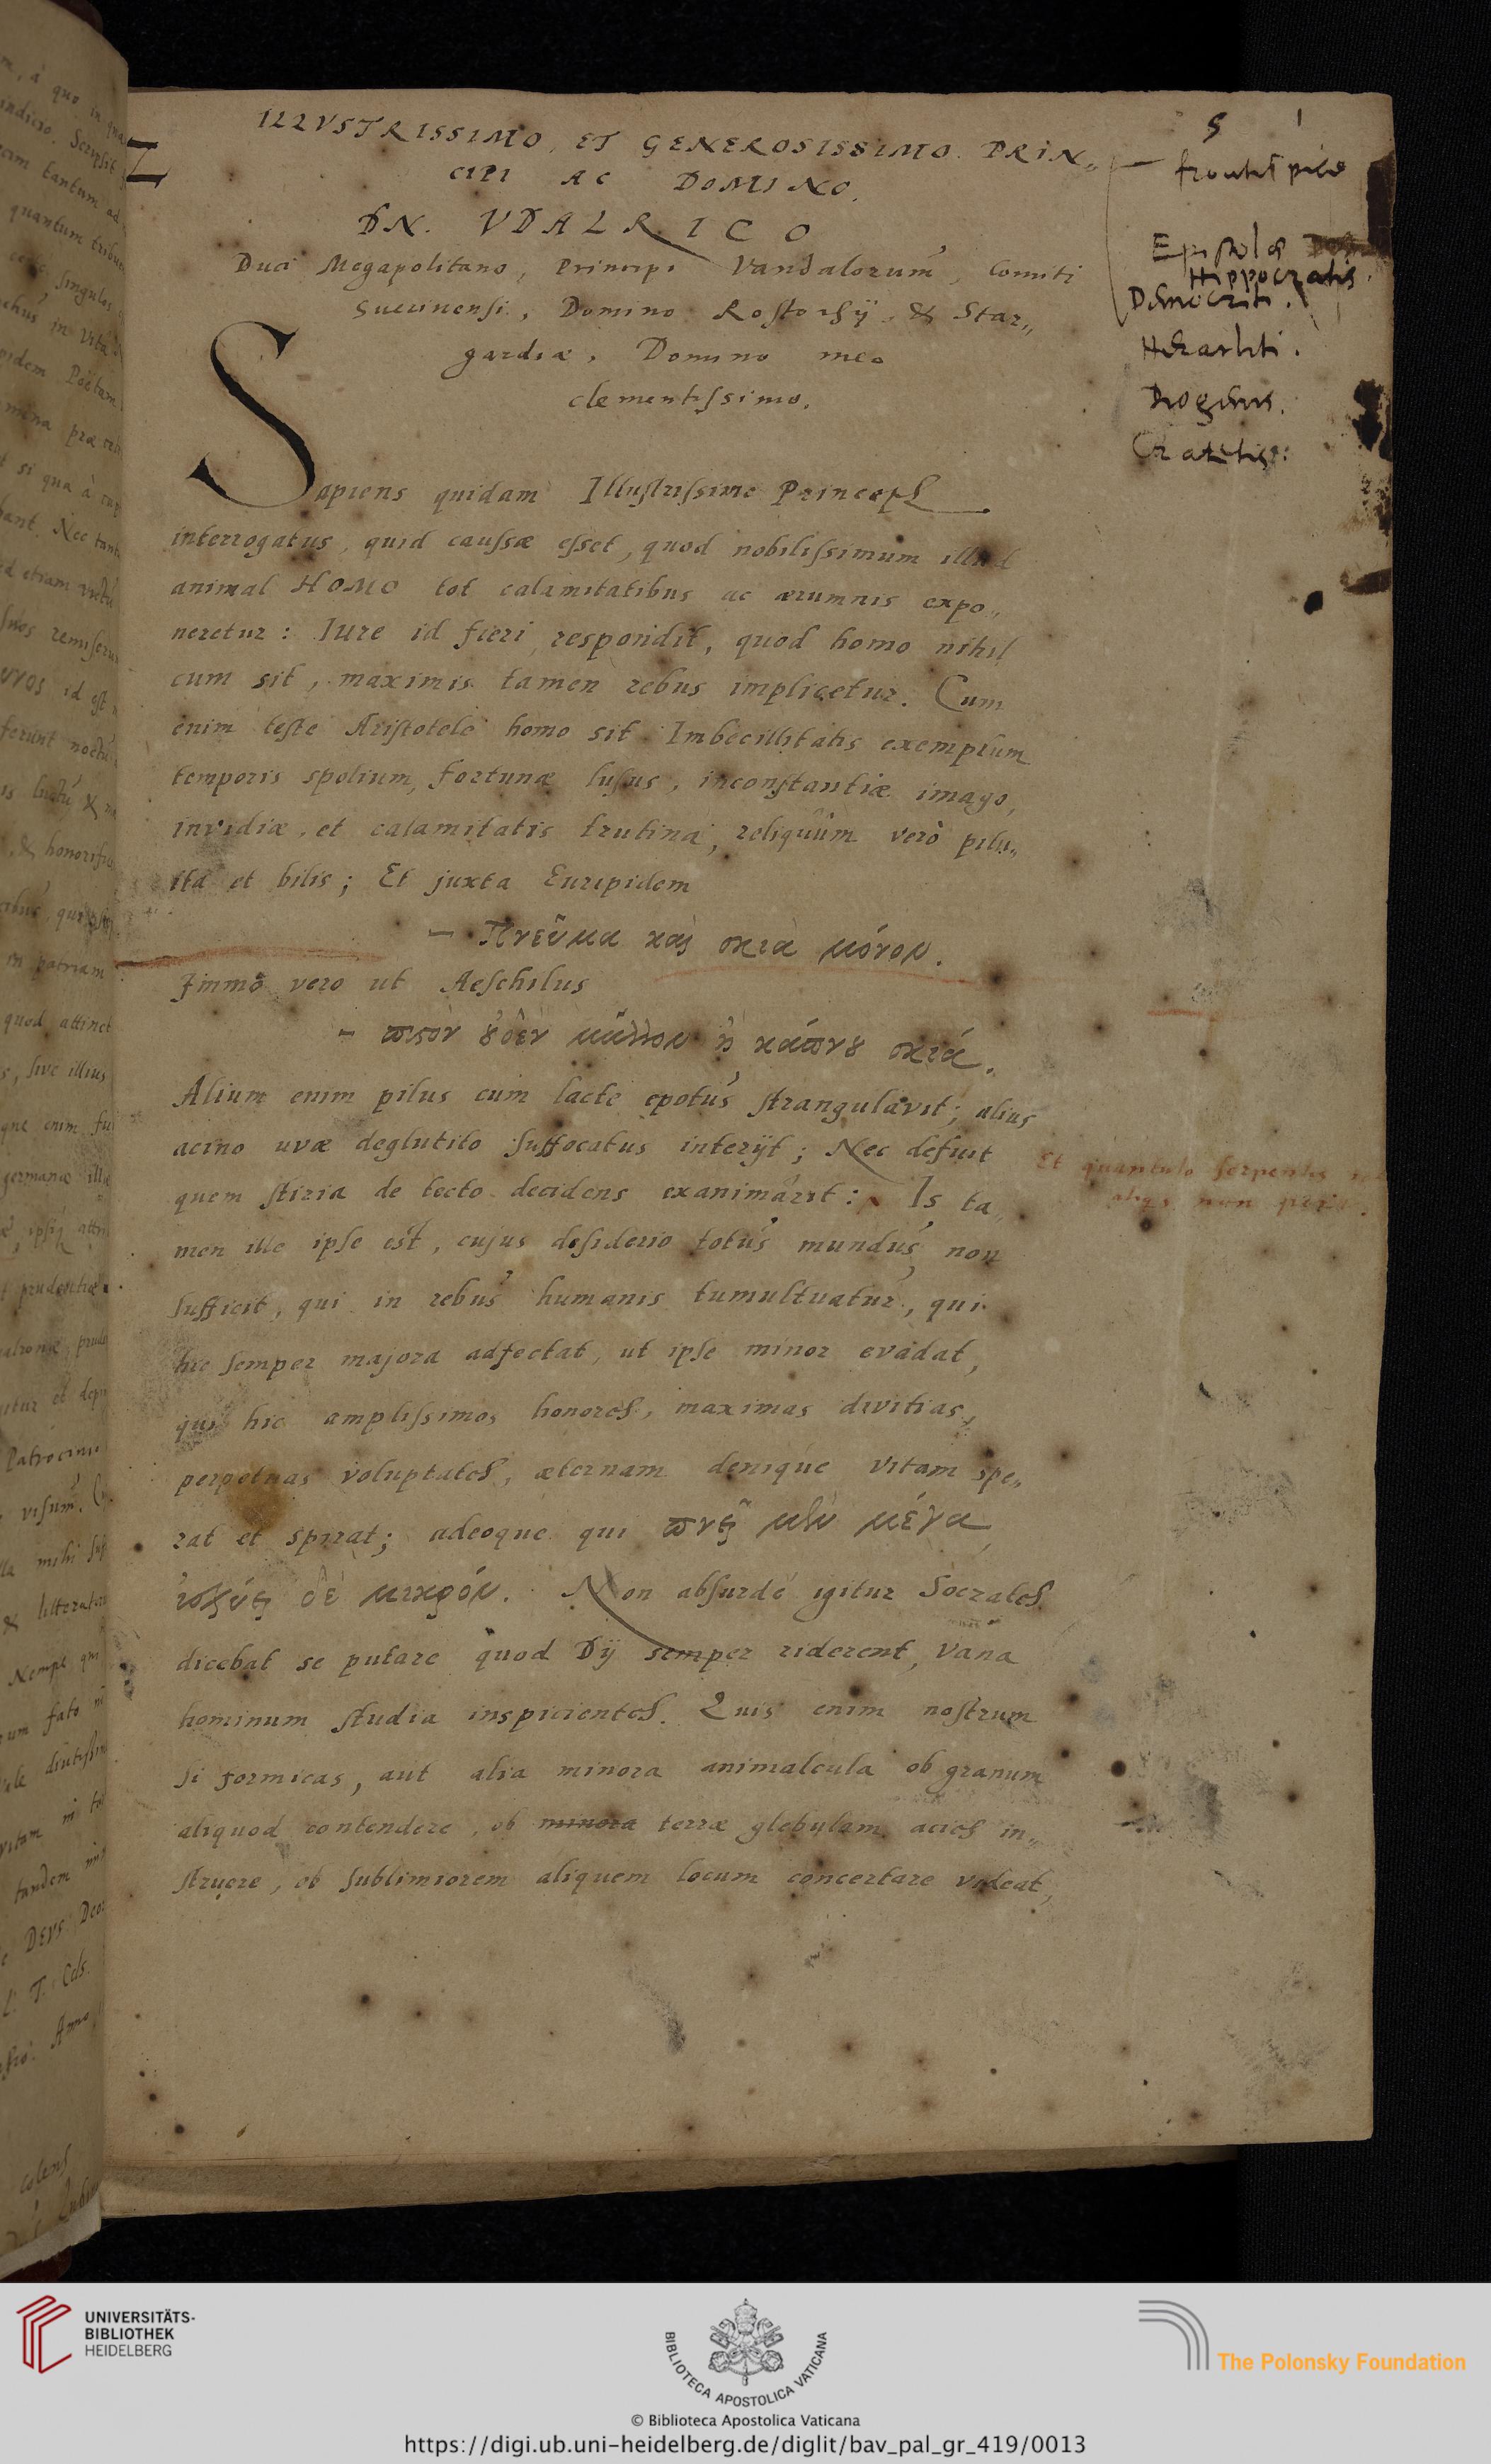 ILLVSTRISSIMO, ET GENEROSISSIMO PRIN„
CIPI AC DOMINO.
DN. VDALRICO
Duci Megapolitano, Principi Vandalorum, Comiti
Suerinensi, Domino Rostochij & Star„
gardiæ, Domino meo
clementissimo.
Sapiens quidam Illustrissime Princeps
interrogatus, quid caussæ esset, quod nobilissimum illud
animal HOMO tot calamitatibus ac ærumnis expo„
neretur: Iure id fieri respondit, quod homo nihil
cum sit, maximis tamen rebus implicetur. Cum
enim teste Aristotele homo sit Imbecillitatis exemplum
temporis spolium, fortunæ lusus, inconstantiæ imago,
invidiæ, et calamitatis trutina, reliquùm verò pitu„
ita et bilis; Et juxta Euripidem
– Πνεῦμα καὶ σκιὰ μόνον.
Immò vero ut Aeschilus
– πιςὸν ȣ̓δὲν μᾶλλον ἢ κάπνȣ σκιά.
Alium enim pilus cum lacte epotus strangulavit; alius
acino uvæ deglutito suffocatus interijt; Nec defuit
quem stiria de tecto decidens exanimârit: Is ta„
men ille ipse est, cujus desiderio totus mundus non
sufficit, qui in rebus humanis tumultuatur, qui
hic semper majora adfectat, ut ipse minor evadat,
qui hic amplissimos honores, maximas divitias,
perpetuas voluptates, æternam denique vitam spe„
rat et spirat; adeoque qui πνεῖ μὲν μέγα,
ἰσχύει δὲ μικρόν. Non absurdè igitur Socrates
dicebat se putare quod Dij semper riderent, vana
hominum studia inspicientes. Quis enim nostrum
si formicas, aut alia minora animalcula ob granum
aliquod contendere, ob minora terræ glebulam acies in„
struere, ob sublimiorem aliquem locum concertare videat,
5 1
Epistolæ
Hippocratis.
Democriti.
Heracliti.
Diogenis.
Cratetis.
Et quantulo serpentis
aliqs non perit.
UNIVERSITÄTS-
BIBLIOTHEK
HEIDELBERG
BIBLIOTECA APOSTOLICA VATICANA
The Polonsky Foundation
© Biblioteca Apostolica Vaticana
https://digi.ub.uni-heidelberg.de/diglit/bav_pal_gr_419/0013